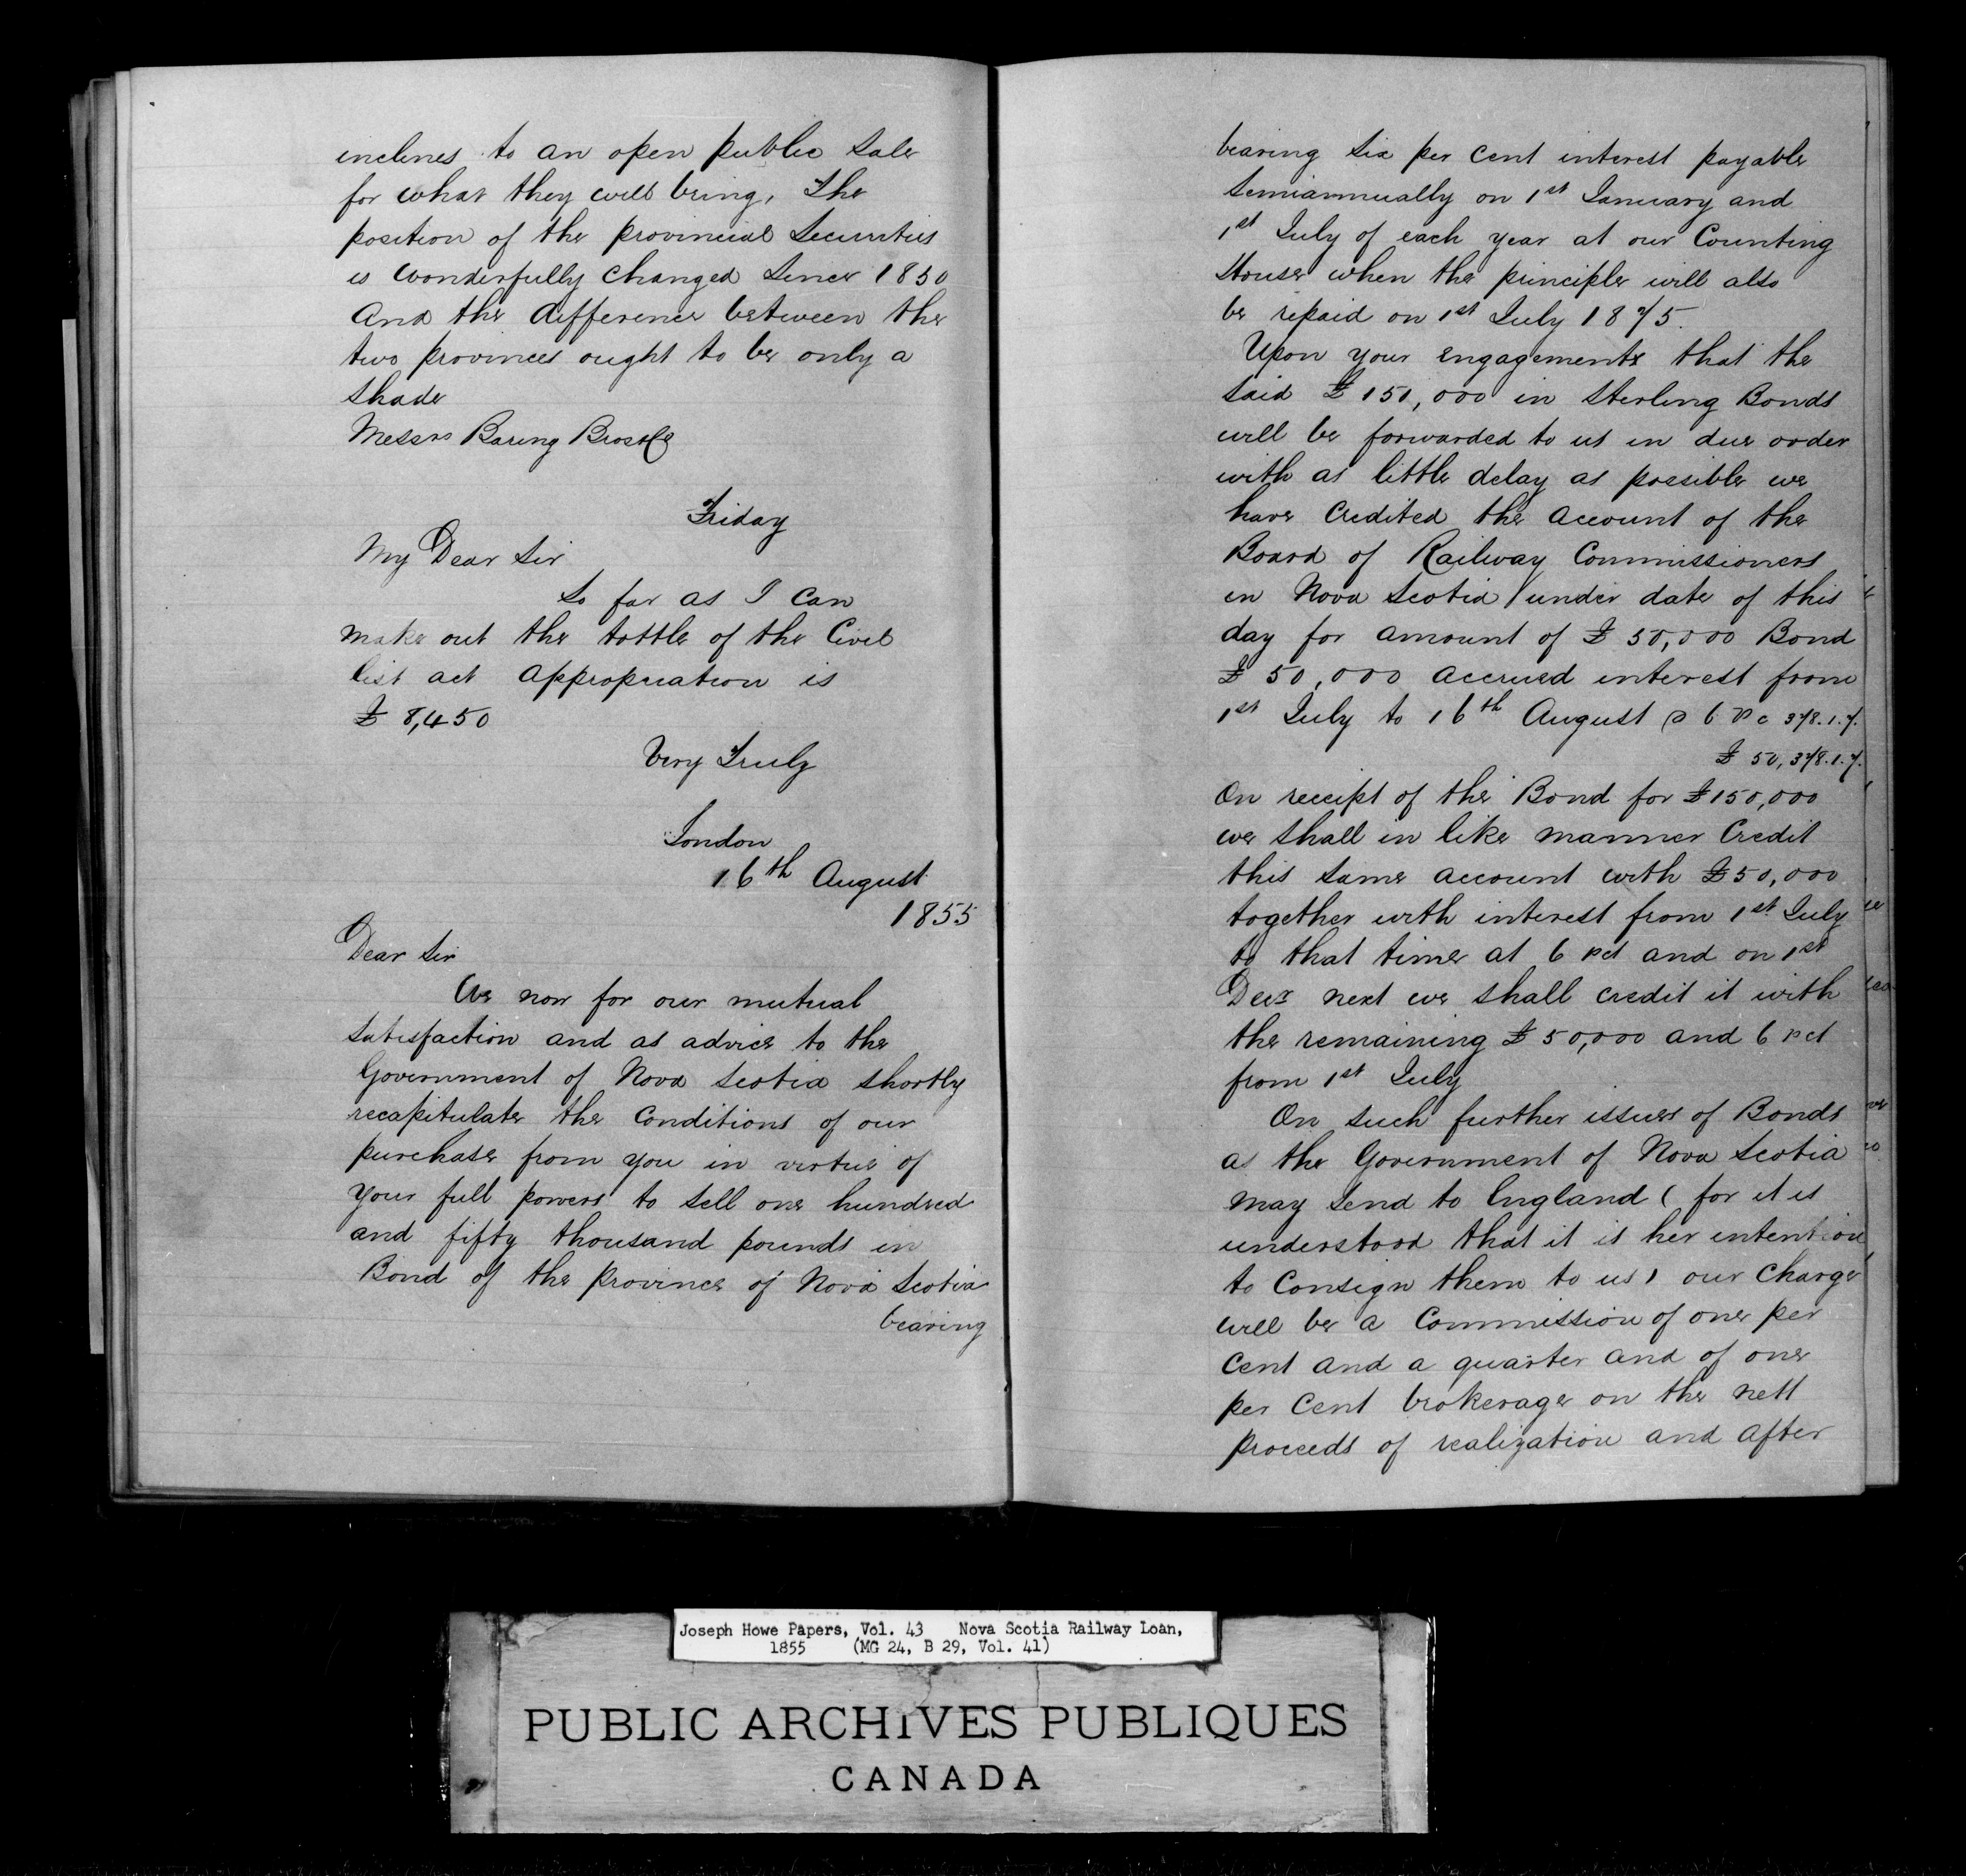 inclines to an open public sale
for what they will bring, The
position of the provincial Securities
is wonderfully changed since 1850
And the difference between the
two provinces ought to be only a
shade
Messrs Baring Bros & Co
Friday
My Dear Sir
So far as I can
make out the tottle of the Civil
list act appropriation is
£ 8,450
Very Truly
London
16th August
1855
Dear Sir
We now for our mutual
satisfaction and as advice to the
Government of Nova Scotia shortly
recapitulate the conditions of our
purchase from you in virtue of
your full powers to sell one hundred
and fifty thousand pounds in
Bond of the province of Nova Scotia
bearing
bearing six per cent interest payable
semiannually on 1st January and
1st July of each year at our Counting
House when the principle will also
be repaid on 1st July 1875.
Upon your engagements that the
said £ 150,000 in Sterling Bonds
will be forwarded to us in due order
with as little delay as possible we
have credited the account of the
Board of Railway Commissioners
in Nova Scotia under date of this
day for amount of £ 50,000 Bond
£ 50,000 accrued interest from
1st July to 16th August @ 6 P c 378.1.7.
£ 50,378.1.7.
On receipt of the Bond for £150,000
we shall in like manner Credit
this same account with £50,000
together with interest from 1st July
to that time at 6 pct and on 1st
Decr next we shall credit it with
the remaining £ 50,000 and 6 pct
from 1st July
On such further issues of Bonds
as the Government of Nova Scotia
may send to England ( for it is
understood that it is her intention
to Consign them to us ) our charge
will be a Commission of one per
cent and a quarter and of one
per cent brokerage on the nett
proceeds of realization and after
Joseph Howe Papers, Vol. 43 Nova Scotia Railway Loan,
1855 (MG 24, B 29, Vol. 41)
PUBLIC ARCHIVES PUBLIQUES
CANADA